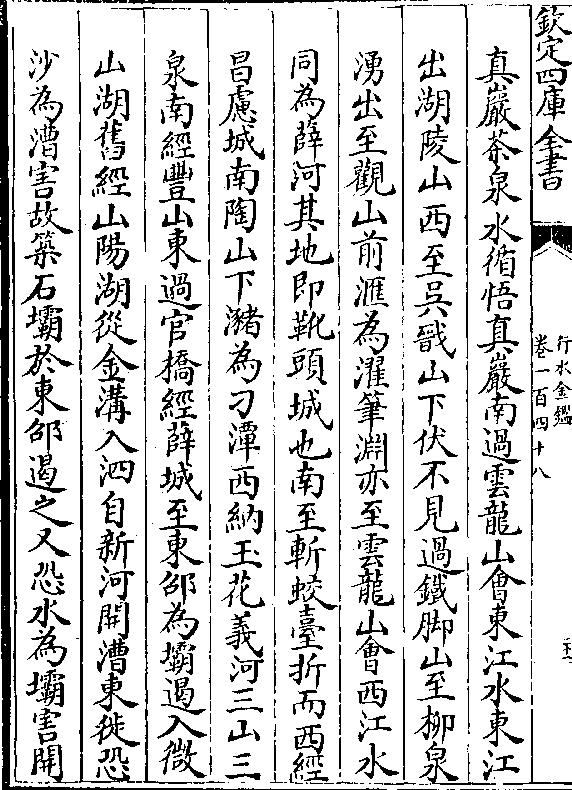 欽定四庫全書
行水金鑑
卷一百四十八
真巖茶泉水循悟真巖南過雲龍山會東江水東江
出湖陵山西至吳戩山下伏不見過鐵脚山至柳泉
湧出至觀山前滙為濯筆淵亦至雲龍山會西江水
同為薛河其地即靴頭城也南至斬蛟臺折而西經
昌慮城南陶山下瀦為刁潭西納玉花義河三山三
泉南經豐山東過官橋經薛城至東邵為壩遏入微
山湖舊經山陽湖從金溝入泗自新河開漕東徙恐
沙為漕害故築石壩於東邵遏之又恐水為壩害開